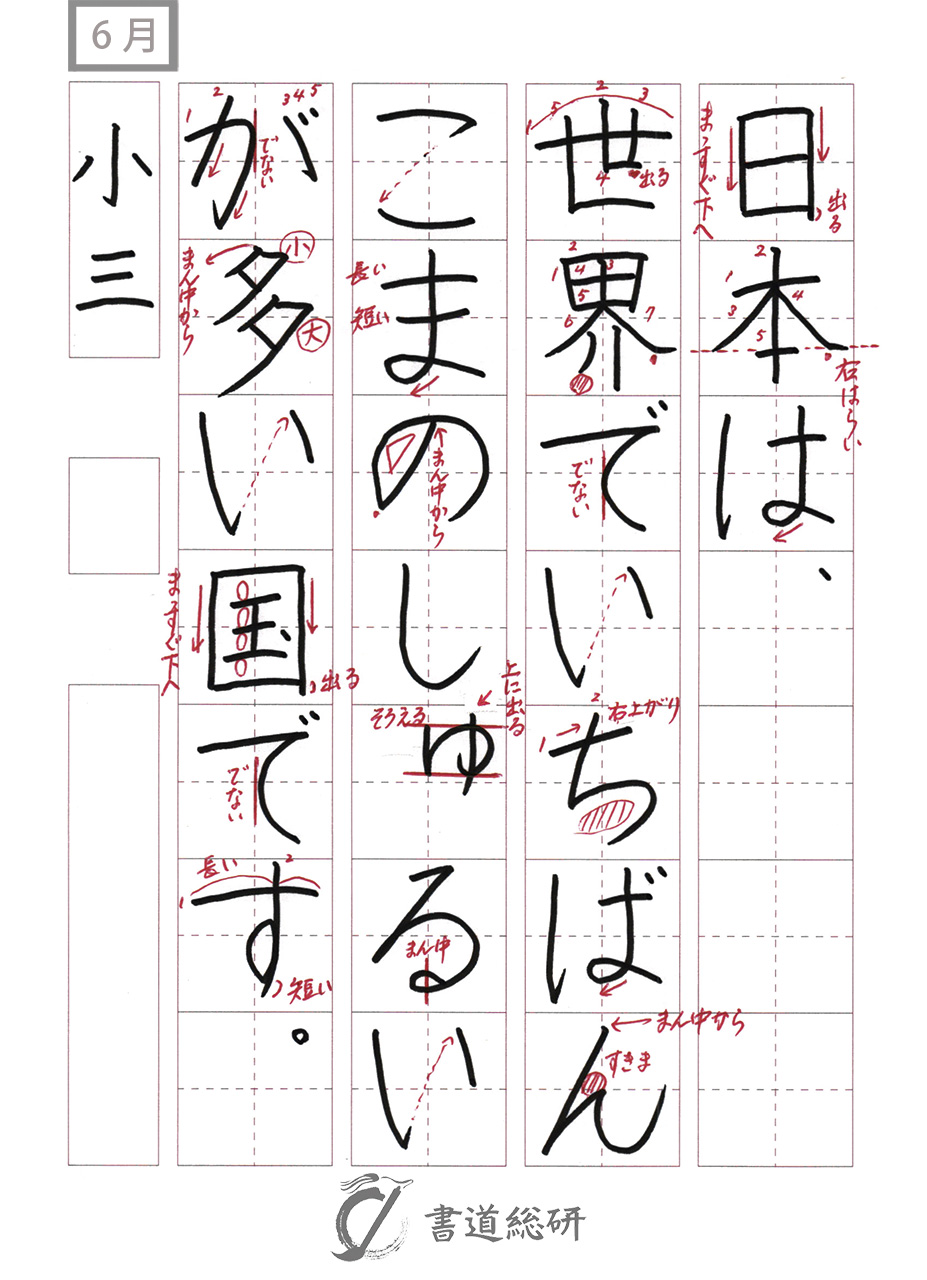 6月
日本は、
世界でいちばん
こまのしゅるい
が多い国です。
小三
まっすぐ下へ
出る
1 2 3 4 5
右はらい
1 5 2 3 4
出る
1 2 4 3 5 6 7
でない
1 2
右上がり
まん中から
すきま
長い
短い
まん中から
そろえる
上に出る
まん中
1 2 3 4 5
でない
小
大
まん中から
まっすぐ下へ
出る
でない
1 長い 2
短い
書道総研